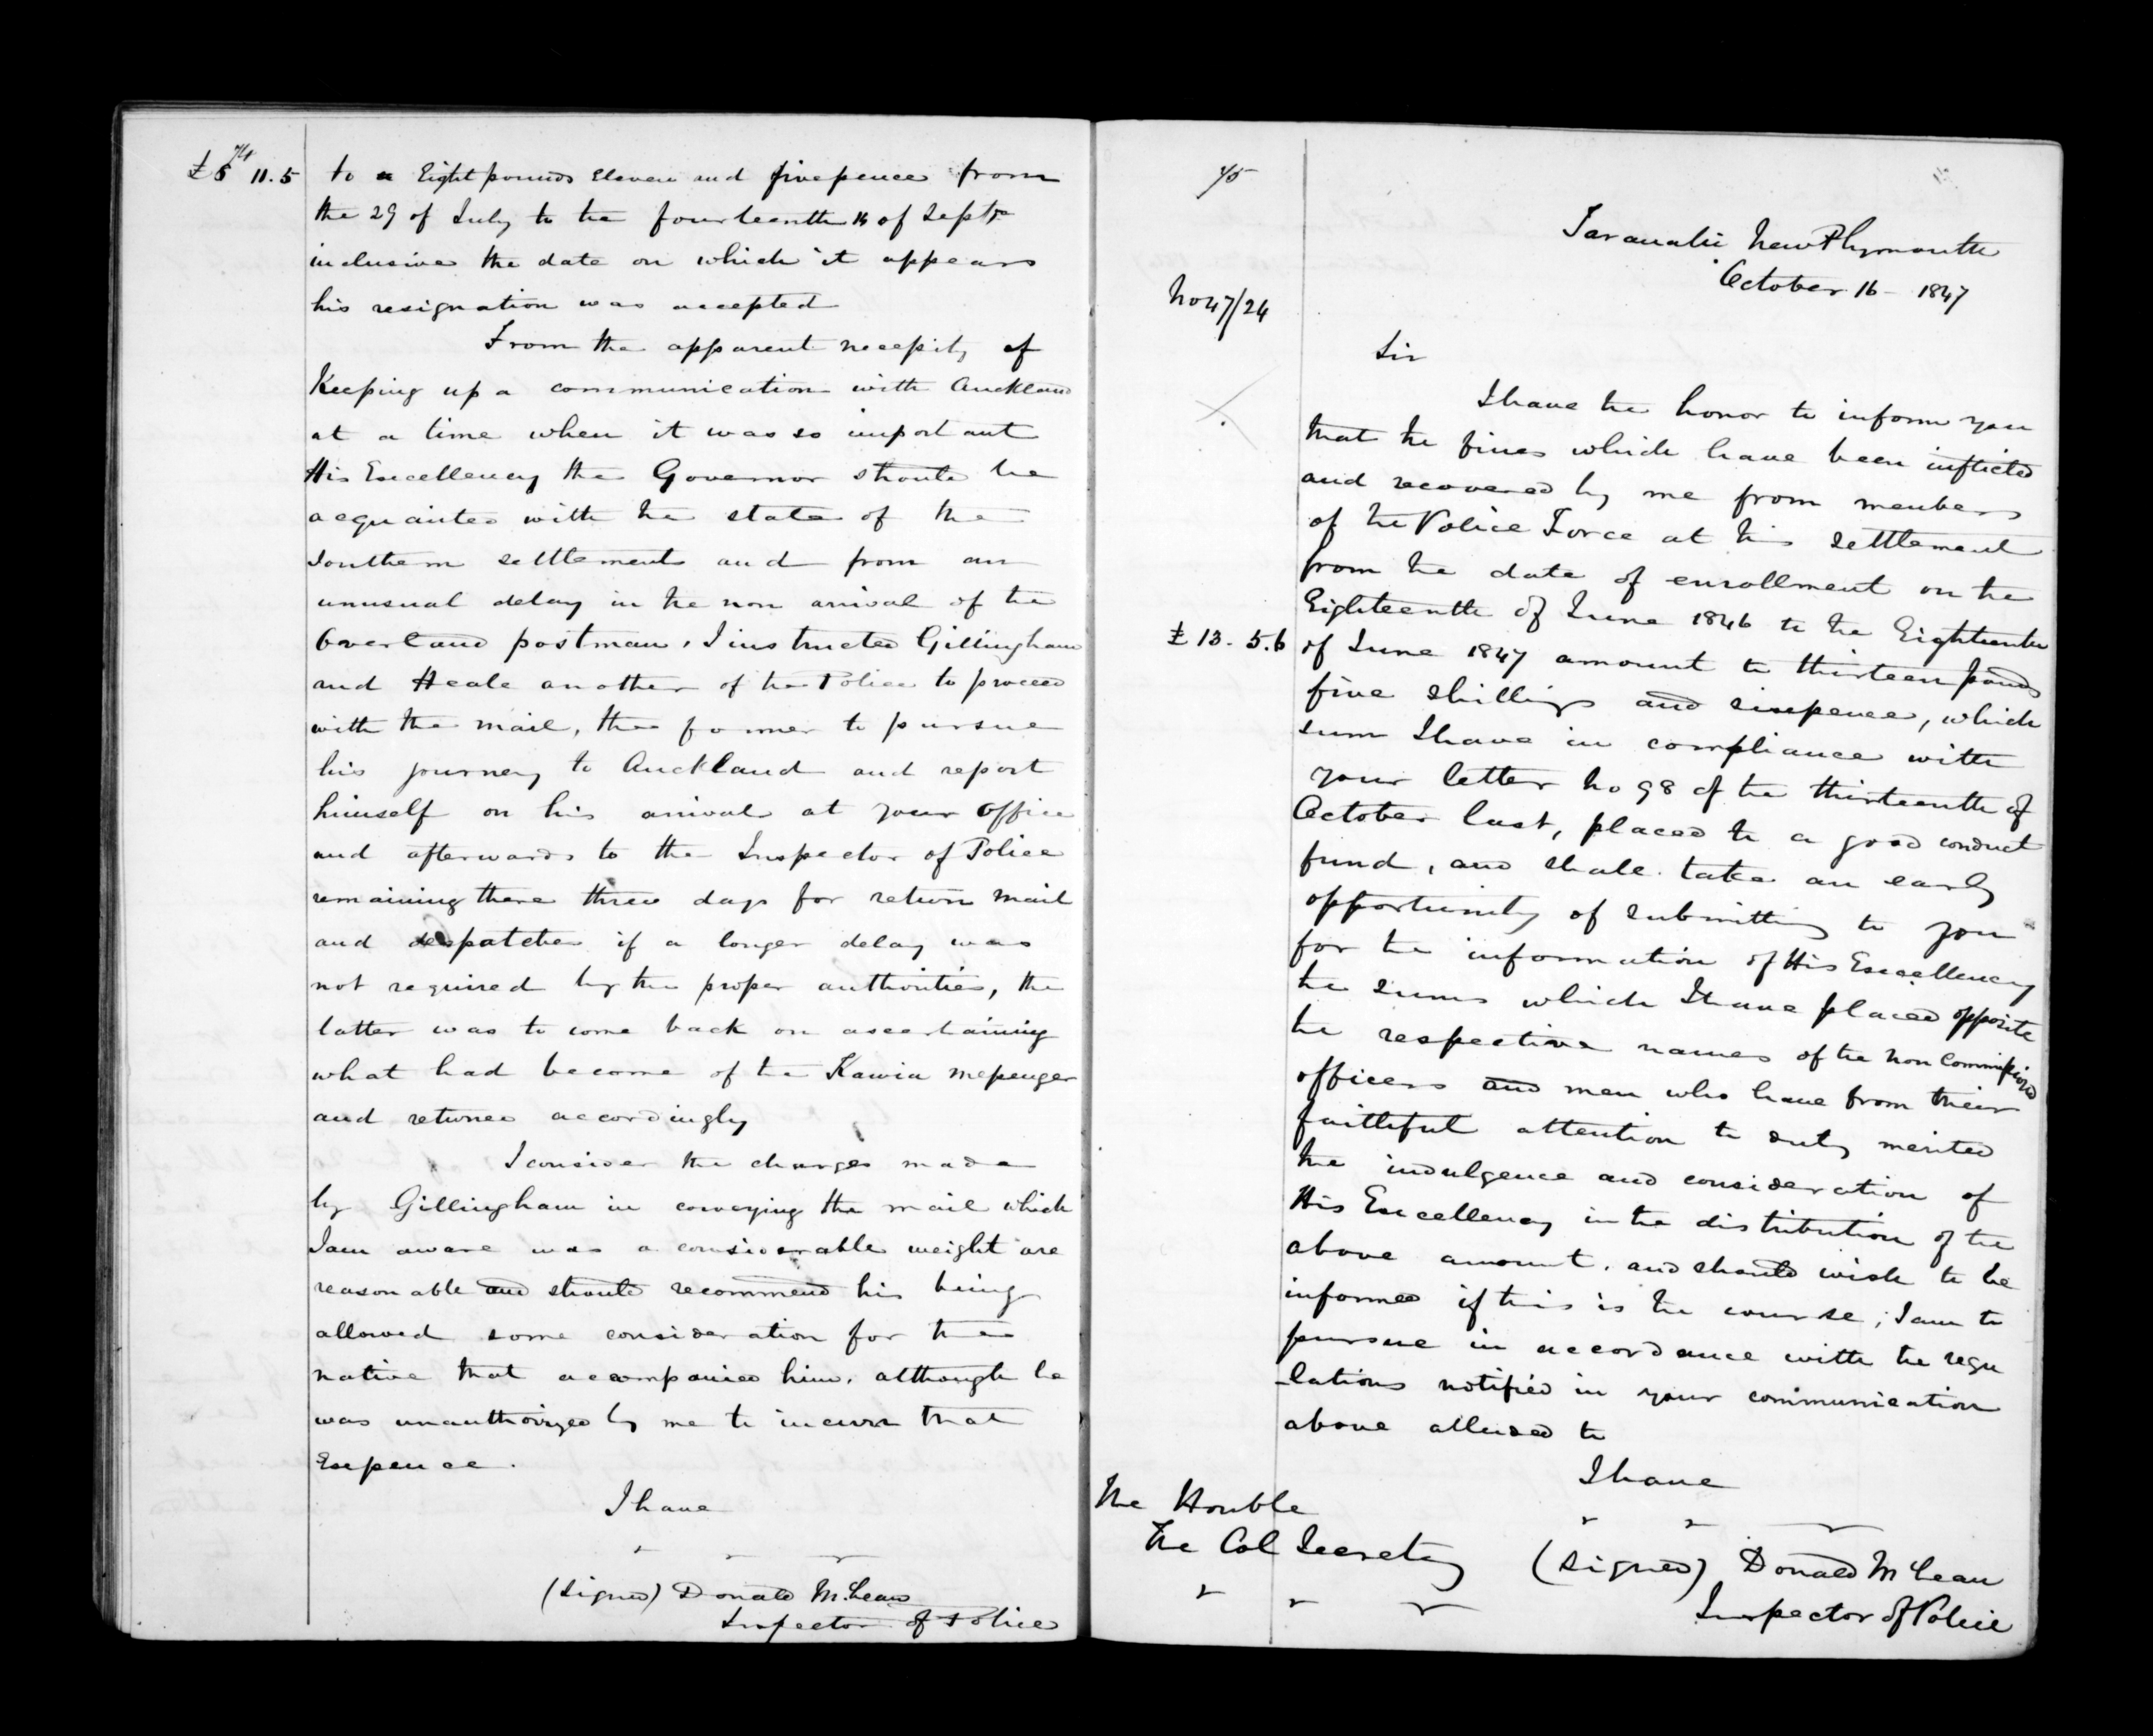 74
£8 11.5
to a Eight pounds Eleven and fivepence from
the 29 of July to the fourteenth 14 of Septr
inclusive the date on which it appears
his resignation was accepted
From the apparent necessity of
Keeping up a communication with Auckland
at a time when it was so important
His Excellency the Governor should be
acquainted with the state of the
Southern settlements and from an
unusual delay in the non arival of the
Overland postman, I instructed Gillingham
and Heale another of the Police to proceed
with the mail, the former to pursue
his journey to Auckland and report
himself on his arival at your Office
and afterwards to the Inspector of Police
remaining there three days for return mail
and despatches if a longer delay was
not required by the proper authorities, the
latter was to come back on ascertaining
what had become of the Kawia messenger
and returned accordingly
I consider the charges made
by Gillingham in conveying the mail which
I am aware was a considerable weight are
reasonable and should recommend his being
allowed some consideration for the
native that accompanied him, although he
was unauthorized by me to incurr that
Expence.
I have
" " "
(Signed) Donald McLean
Inspector of Police
75
Taranaki New Plymouth
October 16 - 1847
No 47/24
Sir
I have the honor to inform you
that the fines which have been inflicted
and recovered by me from members
of the Police Force at this settlement
from the date of enrollment on the
Eighteenth of June 1846 to the Eighteenth
£13. 5. 6
of June 1847 amount to thirteen pounds
five shillings and sixpence, which
sum I have in compliance with
your letter No 98 of the thirteenth of
October last, placed to a good conduct
fund, and shall take an early
opportunity of submitting to you
for the information of His Excellency
the sums which I have placed opposite
the respective names of the Non Commissioned
officers and men who have from their
faithful attention to duty merited
the indulgence and consideration of
His Excellency in the distribution of the
above amount, and should wish to be
informed if this is the course, I am to
pursue in accordance with the regu
-lations notified in your communication
above alluded to
I have
" " "
The Honble
The Col Secretary
" " "
(Signed) Donald McLean
Inspector of Police